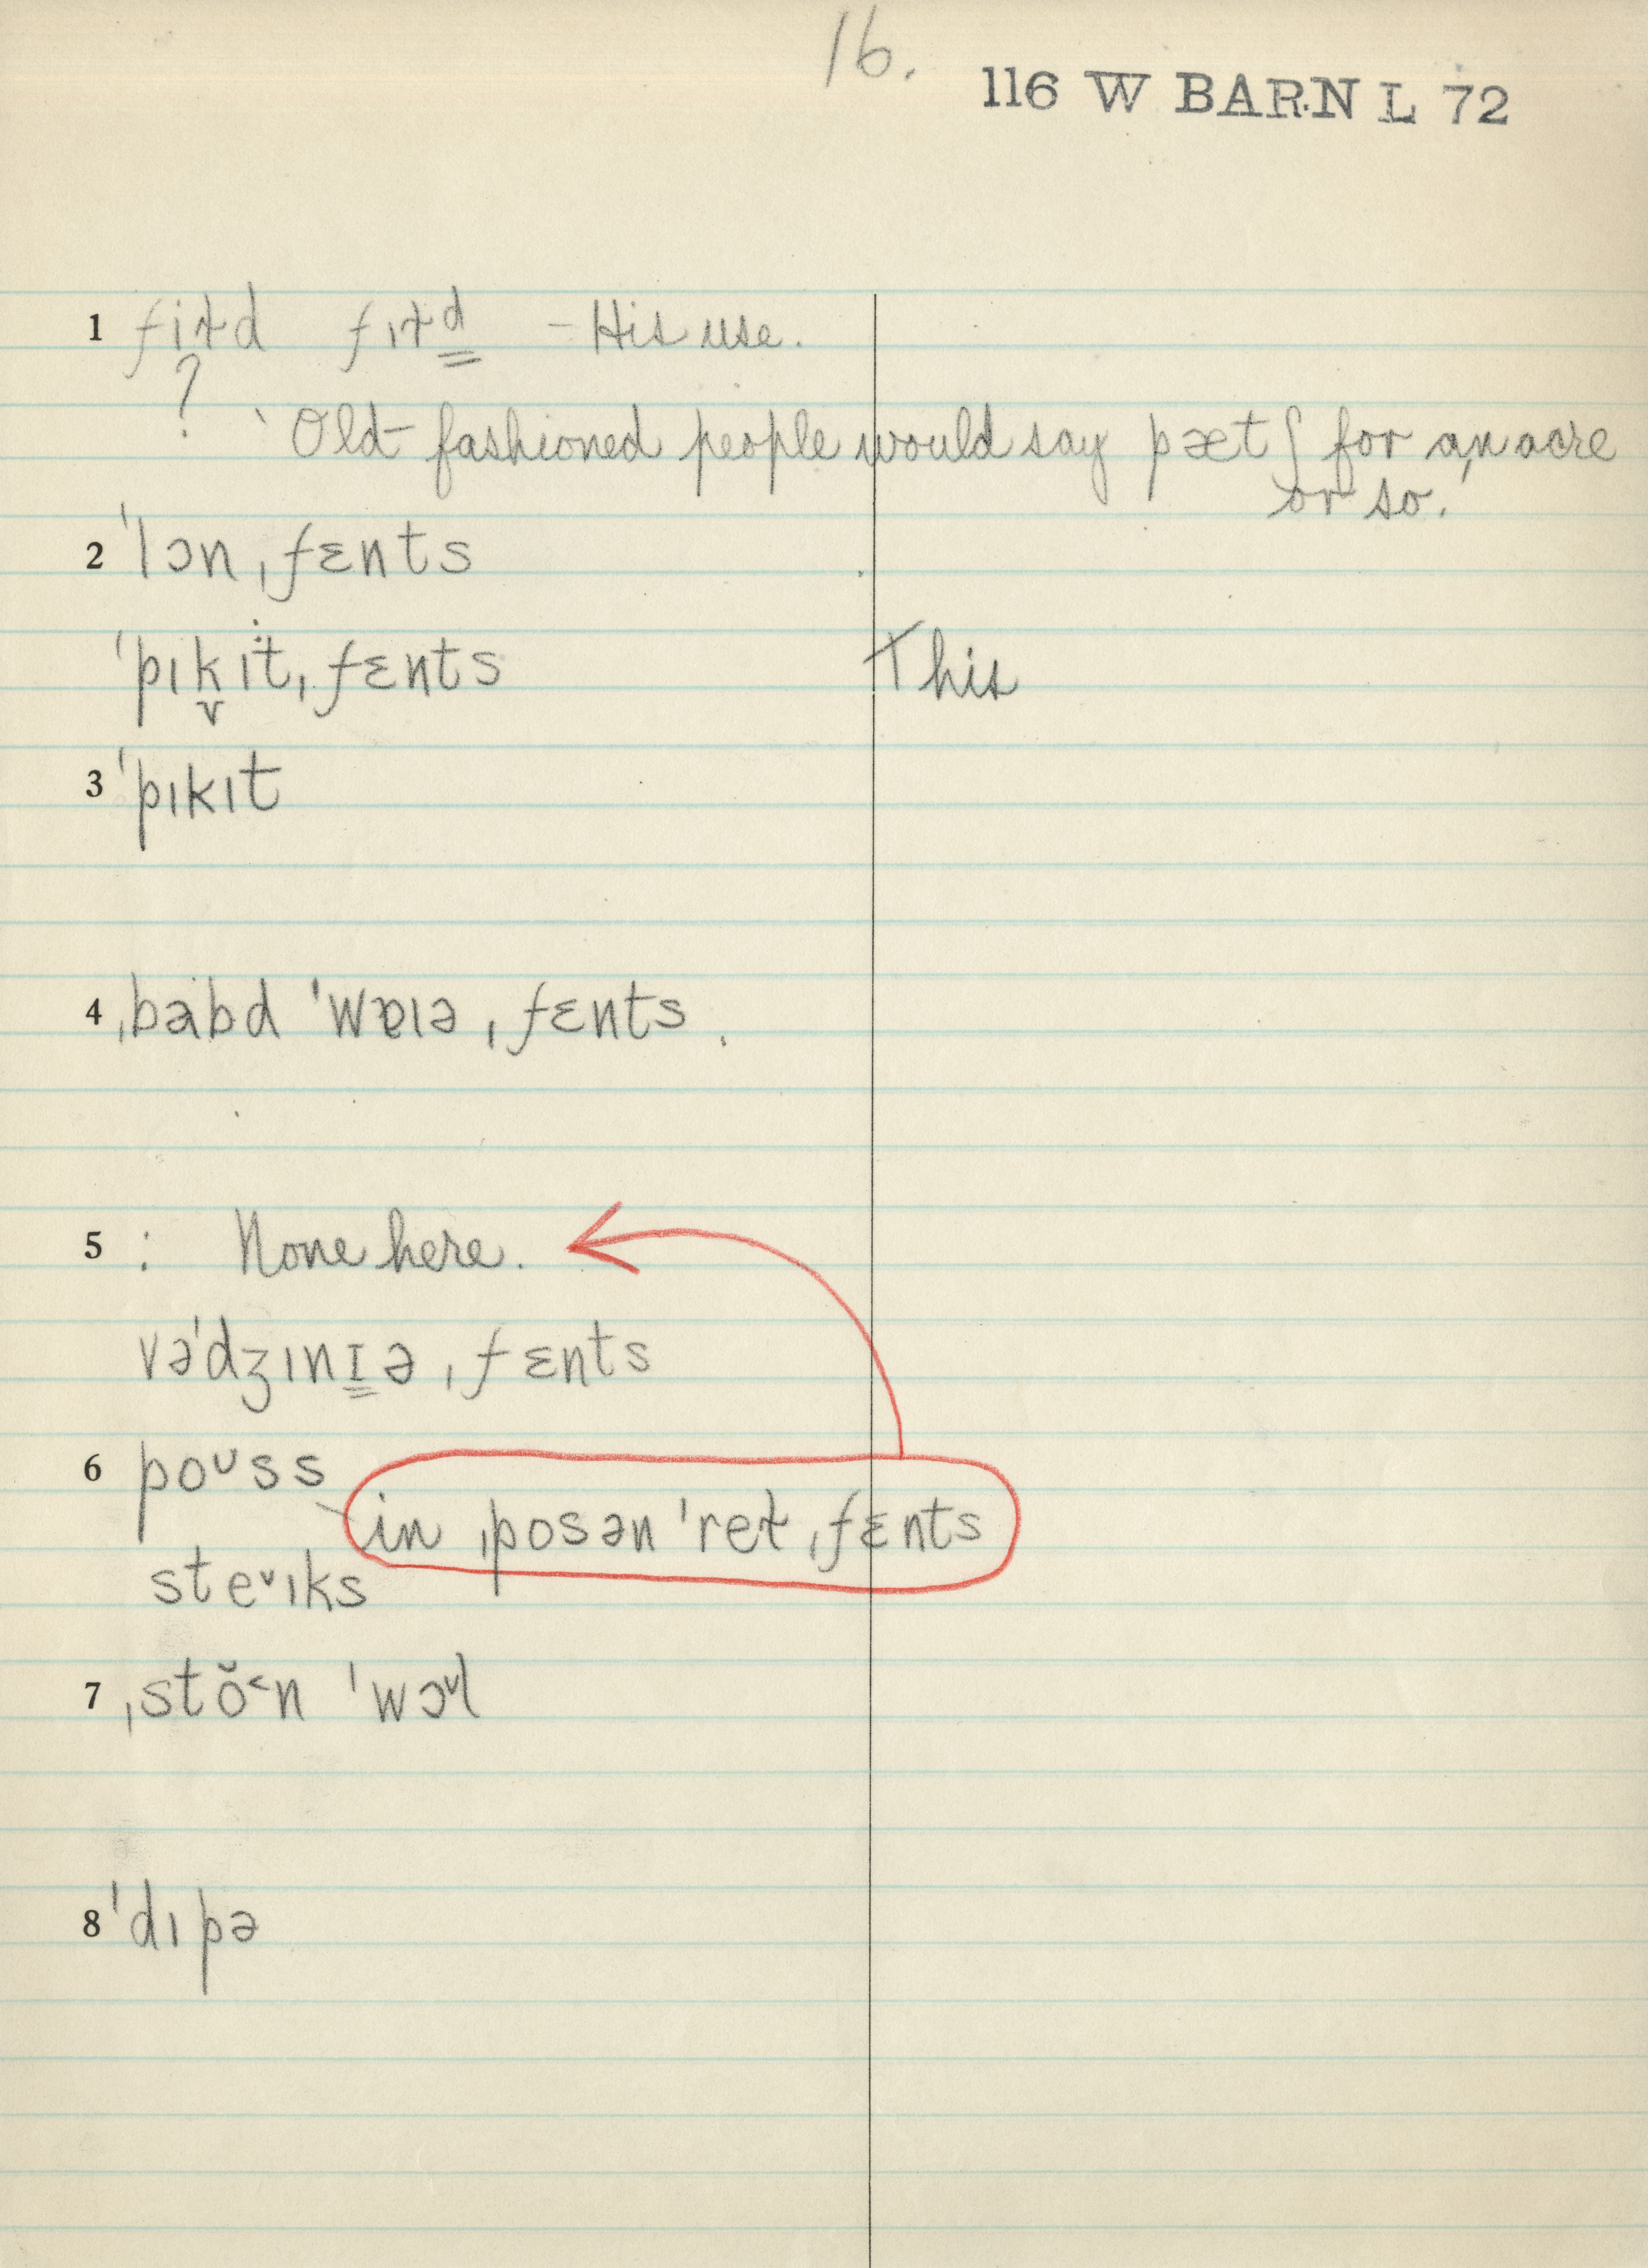 16.
116 W BARN L 72
1 fiɫd fɪɫd – His use.
? ‵Old-fashioned people would say pætʃ for an acre
or so.′
2 ˈlɔnˌfɛnts
ˈpɪkɪtˌfɛnts This
3 ˈpɪkɪt
4 ˌbabd ˈwɐɪəˌfɛnts
5 : None here.
vəˈdʒɪnɪəˌfɛnts
6 poᴜss
in ˌposən ˈreɫˌfɛnts
steᵛɪks
7 ˌstŏ˂n ˈwɔᵛl
8 ˈdɪpə